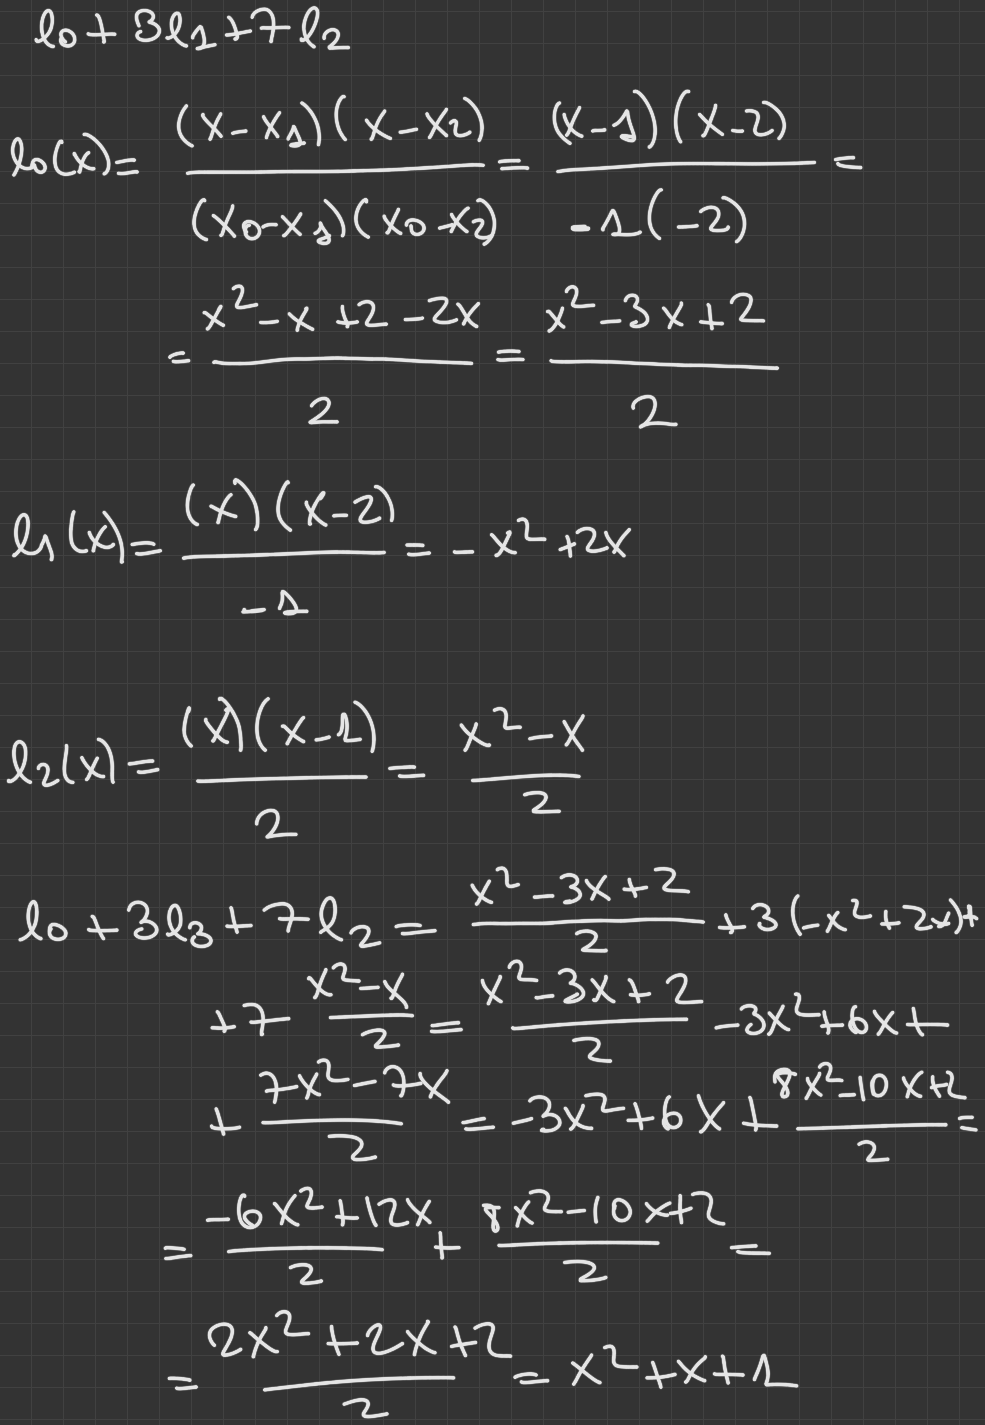 l₀ + 3l₁ + 7l₂
l₀(x) = (x - x₁)(x - x₂) / (x₀ - x₁)(x₀ - x₂) = (x - 1)(x - 2) / -1(-2) =
= (x² - x + 2 - 2x) / 2 = (x² - 3x + 2) / 2
l₁(x) = (x)(x - 2) / -1 = - x² + 2x
l₂(x) = (x)(x - 1) / 2 = (x² - x) / 2
l₀ + 3l₃ + 7l₂ = (x² - 3x + 2) / 2 + 3(-x² + 2x) +
+ 7 (x² - x) / 2 = (x² - 3x + 2) / 2 - 3x² + 6x +
+ (7x² - 7x) / 2 = -3x² + 6x + (8x² - 10x + 2) / 2 =
= (-6x² + 12x) / 2 + (8x² - 10x + 2) / 2 =
= (2x² + 2x + 2) / 2 = x² + x + 1